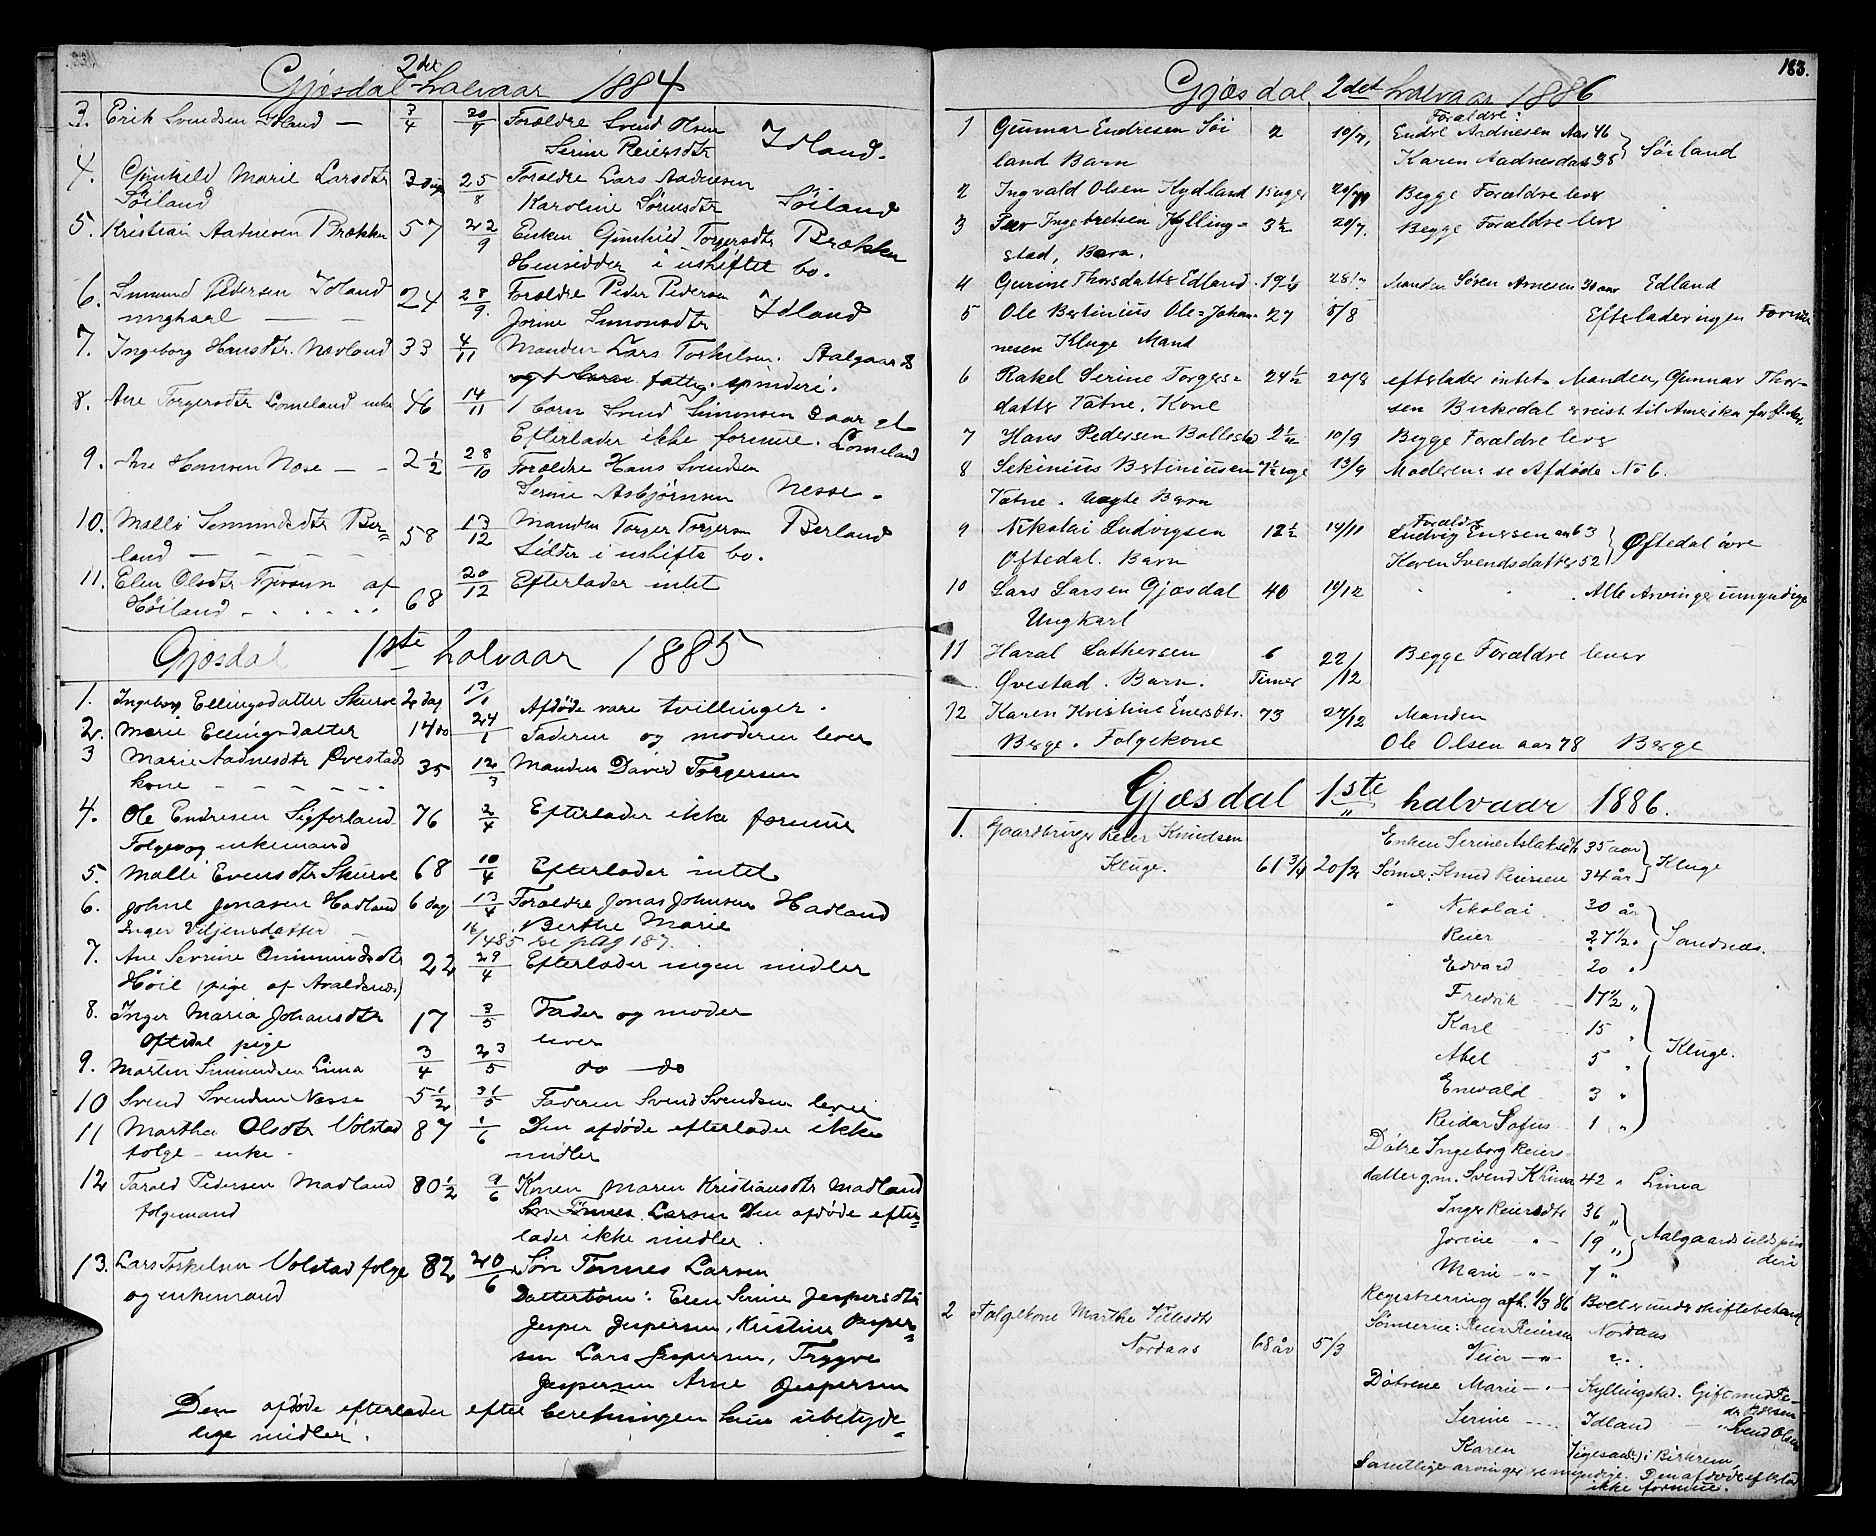 Gjæsdal 2det halvaar 1884
3. Erik Svendsen Idland — 3/4 20/9 Forældre Svend Olsen
Serine Reiersdtr Idland.
4. Gunhild Marie Larsdtr 25/8 Forældre Lars Aadnesen
Søiland Karoline Sørensdtr Søiland
5. Kristian Aadnesen Brækken 57 22/9 Enken Gunhild Torgersdtr Brækken
Hensidder i uskiftet bo.
6. Simund Pedersen Idland 24 28/9 Forældre Peder Pedersen
ungkarl — — Jorine Simonsdtr Idland
7. Ingeborg Hansdtr. Nævland 33 4/11 Manden Lars Torkelsen. Aalgaards
fattig. spinderi.
8. Ane Torgersdtr Lomeland enke 46 14/11 1 barn Svend Simonsen 3 aar
Efterlader ikke formue. Lomeland
9. Ane Hansen Næse — - 2 1/2 28/10 Forældre Hans Svendsen
Serine Asbjørnsen Nesse.
10. Malli Semundsdtr Ber= 58 13/12 Manden Torger Torgersen Berland
land — — — — Sidder i uskifte bo.
11. Elen Olsdtr Tjensun af 20/12 Efterlader intet
Høiland - 68
Gjæsdal 1ste halvaar 1885
1. Ingeborg Ellingsdatter Skurve 2 dag 13/1 Afdøde vare tvillinger.
2. Marie Ellingsdatter 14 24/1 Faderen og moderen lever
3 Marie Aadnesdtr Øvestad 35 12/3 Manden David Torgersen
kone - - - -
4. Ole Endresen Sigferland 76 2/4 Efterlader ikke formue
Folge og enkemand
5. Malli Evensdtr Skurve 68 10/4 Efterlader intet
6. Johne Jonasen Hadland 6 dag 13/4 Forældre Jonas Johnsen Hadland
Inger Veljensdatter 16/4 85 se pag 187. Berthe Marie
7. Ane Serine Omundsdtr 22 29/4 Efterlader ingen midler
Høil (pige af Avaldsnæs)
8. Inger Maria Johansdtr 17 3/5 Fader og moder
Oftedal pige lever
9. Martin Simundsen Lima 3/4 23/5 do — do
10 Svend Svendsen Nesse 5 1/2 31/5 Faderen Svend Svendsen lever
11 Martha Olsdtr Volstad 87 1/6 Den afdøde efterlader ikke
folge - enke - midler
12 Tarald Pedersen Madland 80 1/2 9/6 Konen Maren Kristiansdtr Madland
folgemand Søn Tønnes Larsen Den afdøde efter-
lader ikke midler.
13. Lars Torkelsen Volstad folge 82 20/6 Søn Tønnes Larsen
og enkemand Datterbørn: Elen Serine Jespersdtr
Jesper Jespersen, Kristine Jesper-
sen Lars Jespersen, Trygve
Jespersen Arne Jespersen
Den afdøde efterlader efter beretningen kun ubetyde-
lige midler.
183.
Gjæsdal, 2det halvaar 1886
1 Gunnar Endresen Søi 2 10/7, Forældre: Endre Aadnesen Aar 46
land Barn Karen Aadnesdatr 38 } Søiland
2 Ingvald Olsen Kydland 15 uger 20/7 Begge Forældre lever
3 Peer Ingebretsen Kylling= 3 1/2 20/7. Begge Forældre lever
stad, Barn.
4 Gurine Thorsdatter Edland. 19 1/4 28/7 Manden Søren Arnesen 30 aar Edland
5 Ole Bertinius Ole=Johan= 27 5/8 Efterlader ingen Formue
nesen Kluge Mand
6 Rakel Serine Torgers= 24 1/2 20/8 efterlader intet. Manden, Gunnar Thor=
datter Tatne, Kone sen Birkedal er reist til Amerika
7 Hans Pedersen Ballestad 2 1/12 10/9 Begge Forældre lever
8 Sekinius Bertiniusen 7 1/2 uge 13/9 Moderen: se Afdøde No 6.
Tatne. uægte Barn
9 Nikolai Ludvigsen 12 1/2 14/11 Forældre Ludvig Enersen aar 63
Oftedal. Barn Karen Svendsdatter 52 } Oftedal øvre
10 Lars Larsen Gjæsdal 40 14/12 . Alle Arvinger umyndige
Ungkarl
11 Haral Lathersen 6 22/ Begge Forældre lever
Øvestad. Barn. Timer /12
12 Karen Kristine Enersdtr. 73 27/12 Manden
Berge. Folgekone Ole Olsen aar 78 Berge
Gjæsdal 1ste halvaar 1886.
1. Gaardbruger Reier Knudsen Enken Serine Aslaksdtr 35 aar
Kluge. 61 3/4 20/2 Sønner: Knud Reiersen 34 år } Kluge
" Nikolai 30 år
Reier 27 1/2 " } Sandnæs.
Edvard 20 "
Fredrik 17 1/2 "
Karl 15 "
Abel 5 " } Kluge.
Enevald 3 "
Reidar Sofus 1 "
Døtre Ingeborg Reiers=
datter gm. Svend Lima 42 " Lima
Inger Reiersdtr 36 "
Jorine — " — 19 " } Aalgaards uldspin
Marie — " — 7 " deri
Registrering afh. 1/3 86 Boet er under skiftebehandl
2 Folgekone Marthe Villesdtr Sønnerne: Reier Reiersen Nordaas
Nordaas 68 år 5/3 Veier — " — " .
Døtrene Marie — " — Kyllingstad. Gift med Pe-
der Pedersen
Serine - - - Idland — " Svend Olsen
Karen Vigesaa i Birkrem,
Samtlige arvinger ere myndige. Den afdøde efterlod
ikke formue.